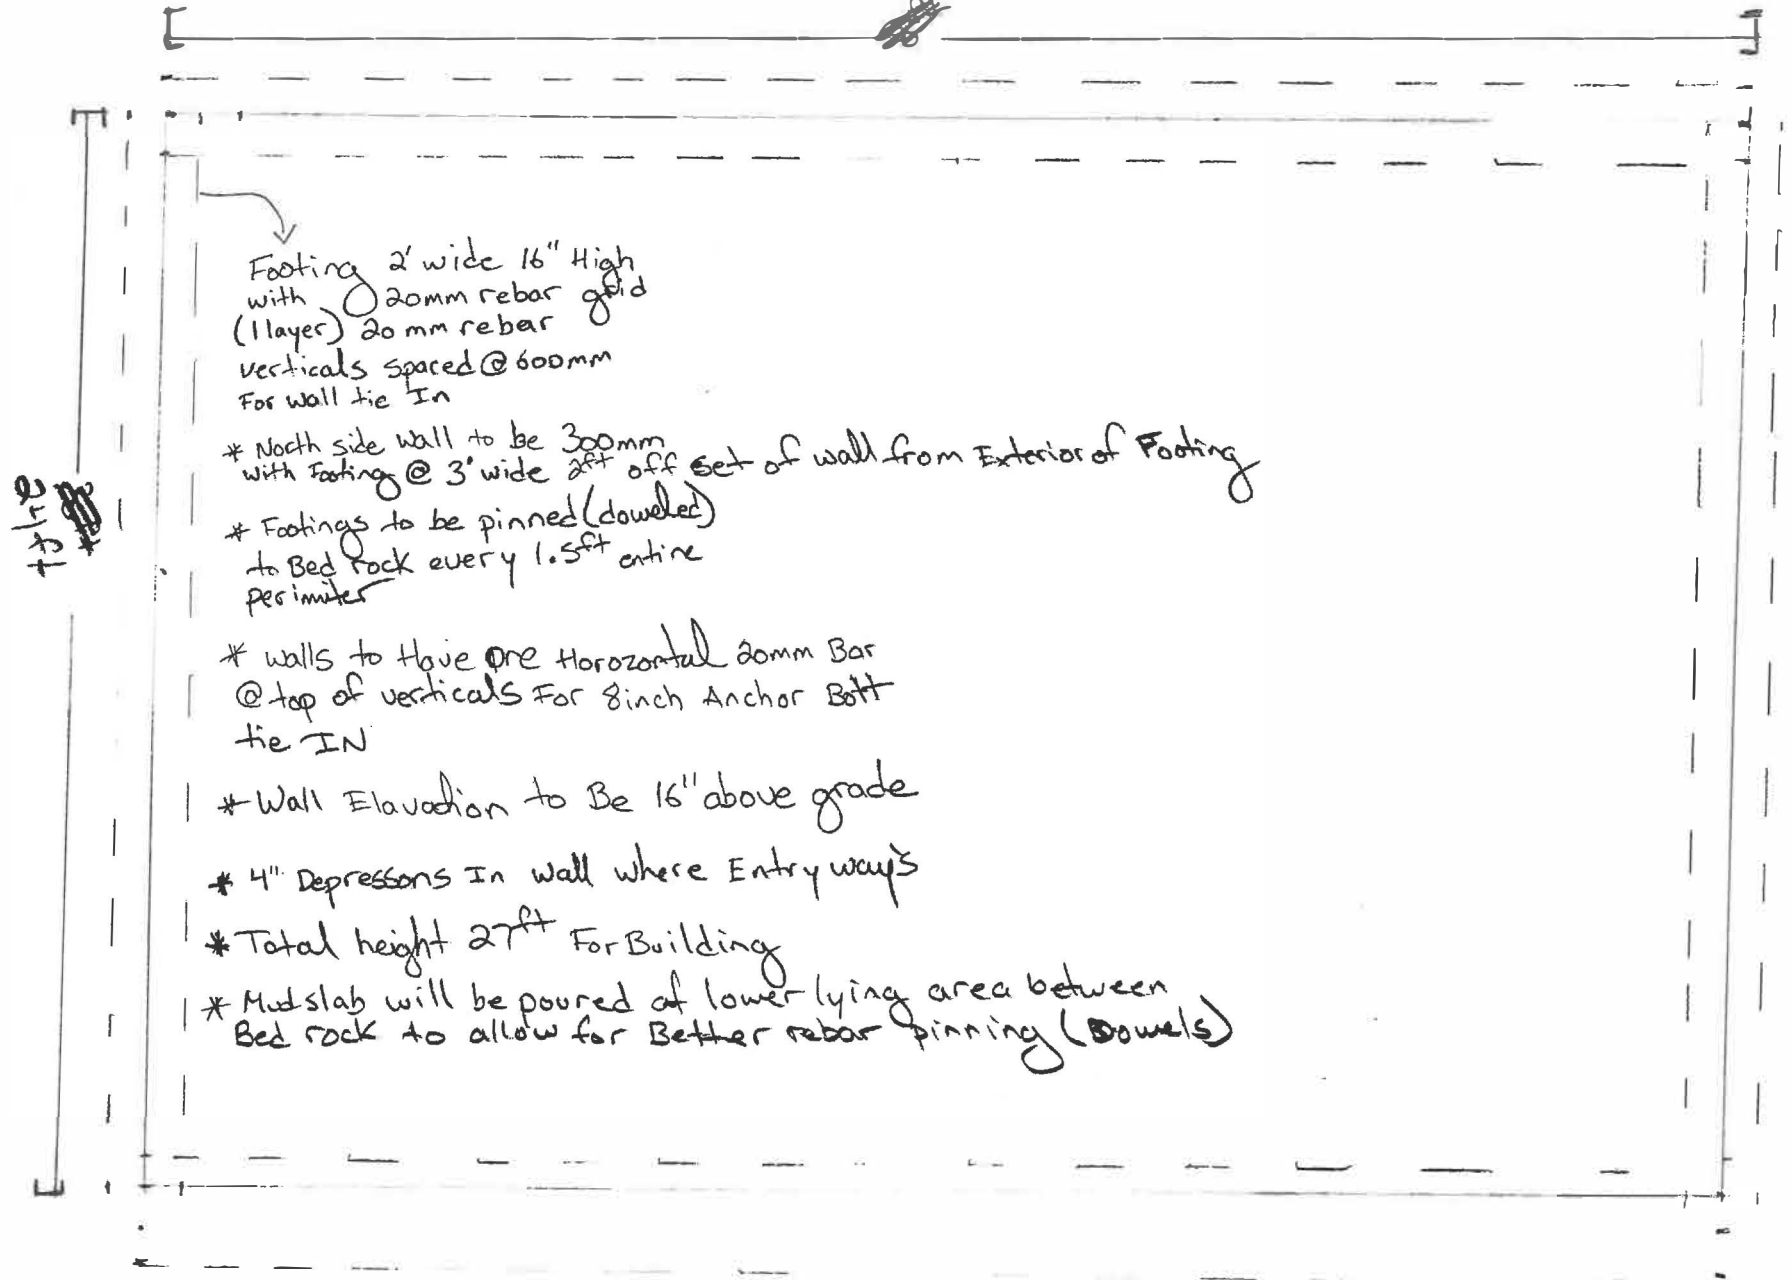 Footing 2' wide 16" High
with 20mm rebar grid
(1 layer) 20 mm rebar
verticals spaced @ 600mm
For wall tie In
* North side wall to be 300mm
with Footing @ 3' wide 2ft off set of wall from Exterior of Footing
* Footings to be pinned (doweled)
to Bed rock every 1.5ft entire
perimiter
* walls to Have one Horozontal 20mm Bar
@ top of verticals For 8inch Anchor Bolt
tie IN
* Wall Elavation to Be 16" above grade
* 4" Depressons In wall where Entry way's
* Total height 27ft For Building
* Mudslab will be poured at lower lying area between
Bed rock to allow for Better rebar pinning (Dowels)